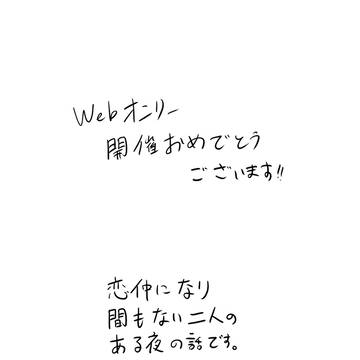 Webオンリー
開催おめでとう
ございます!!
恋仲になり
間もない二人の
ある夜の話です。